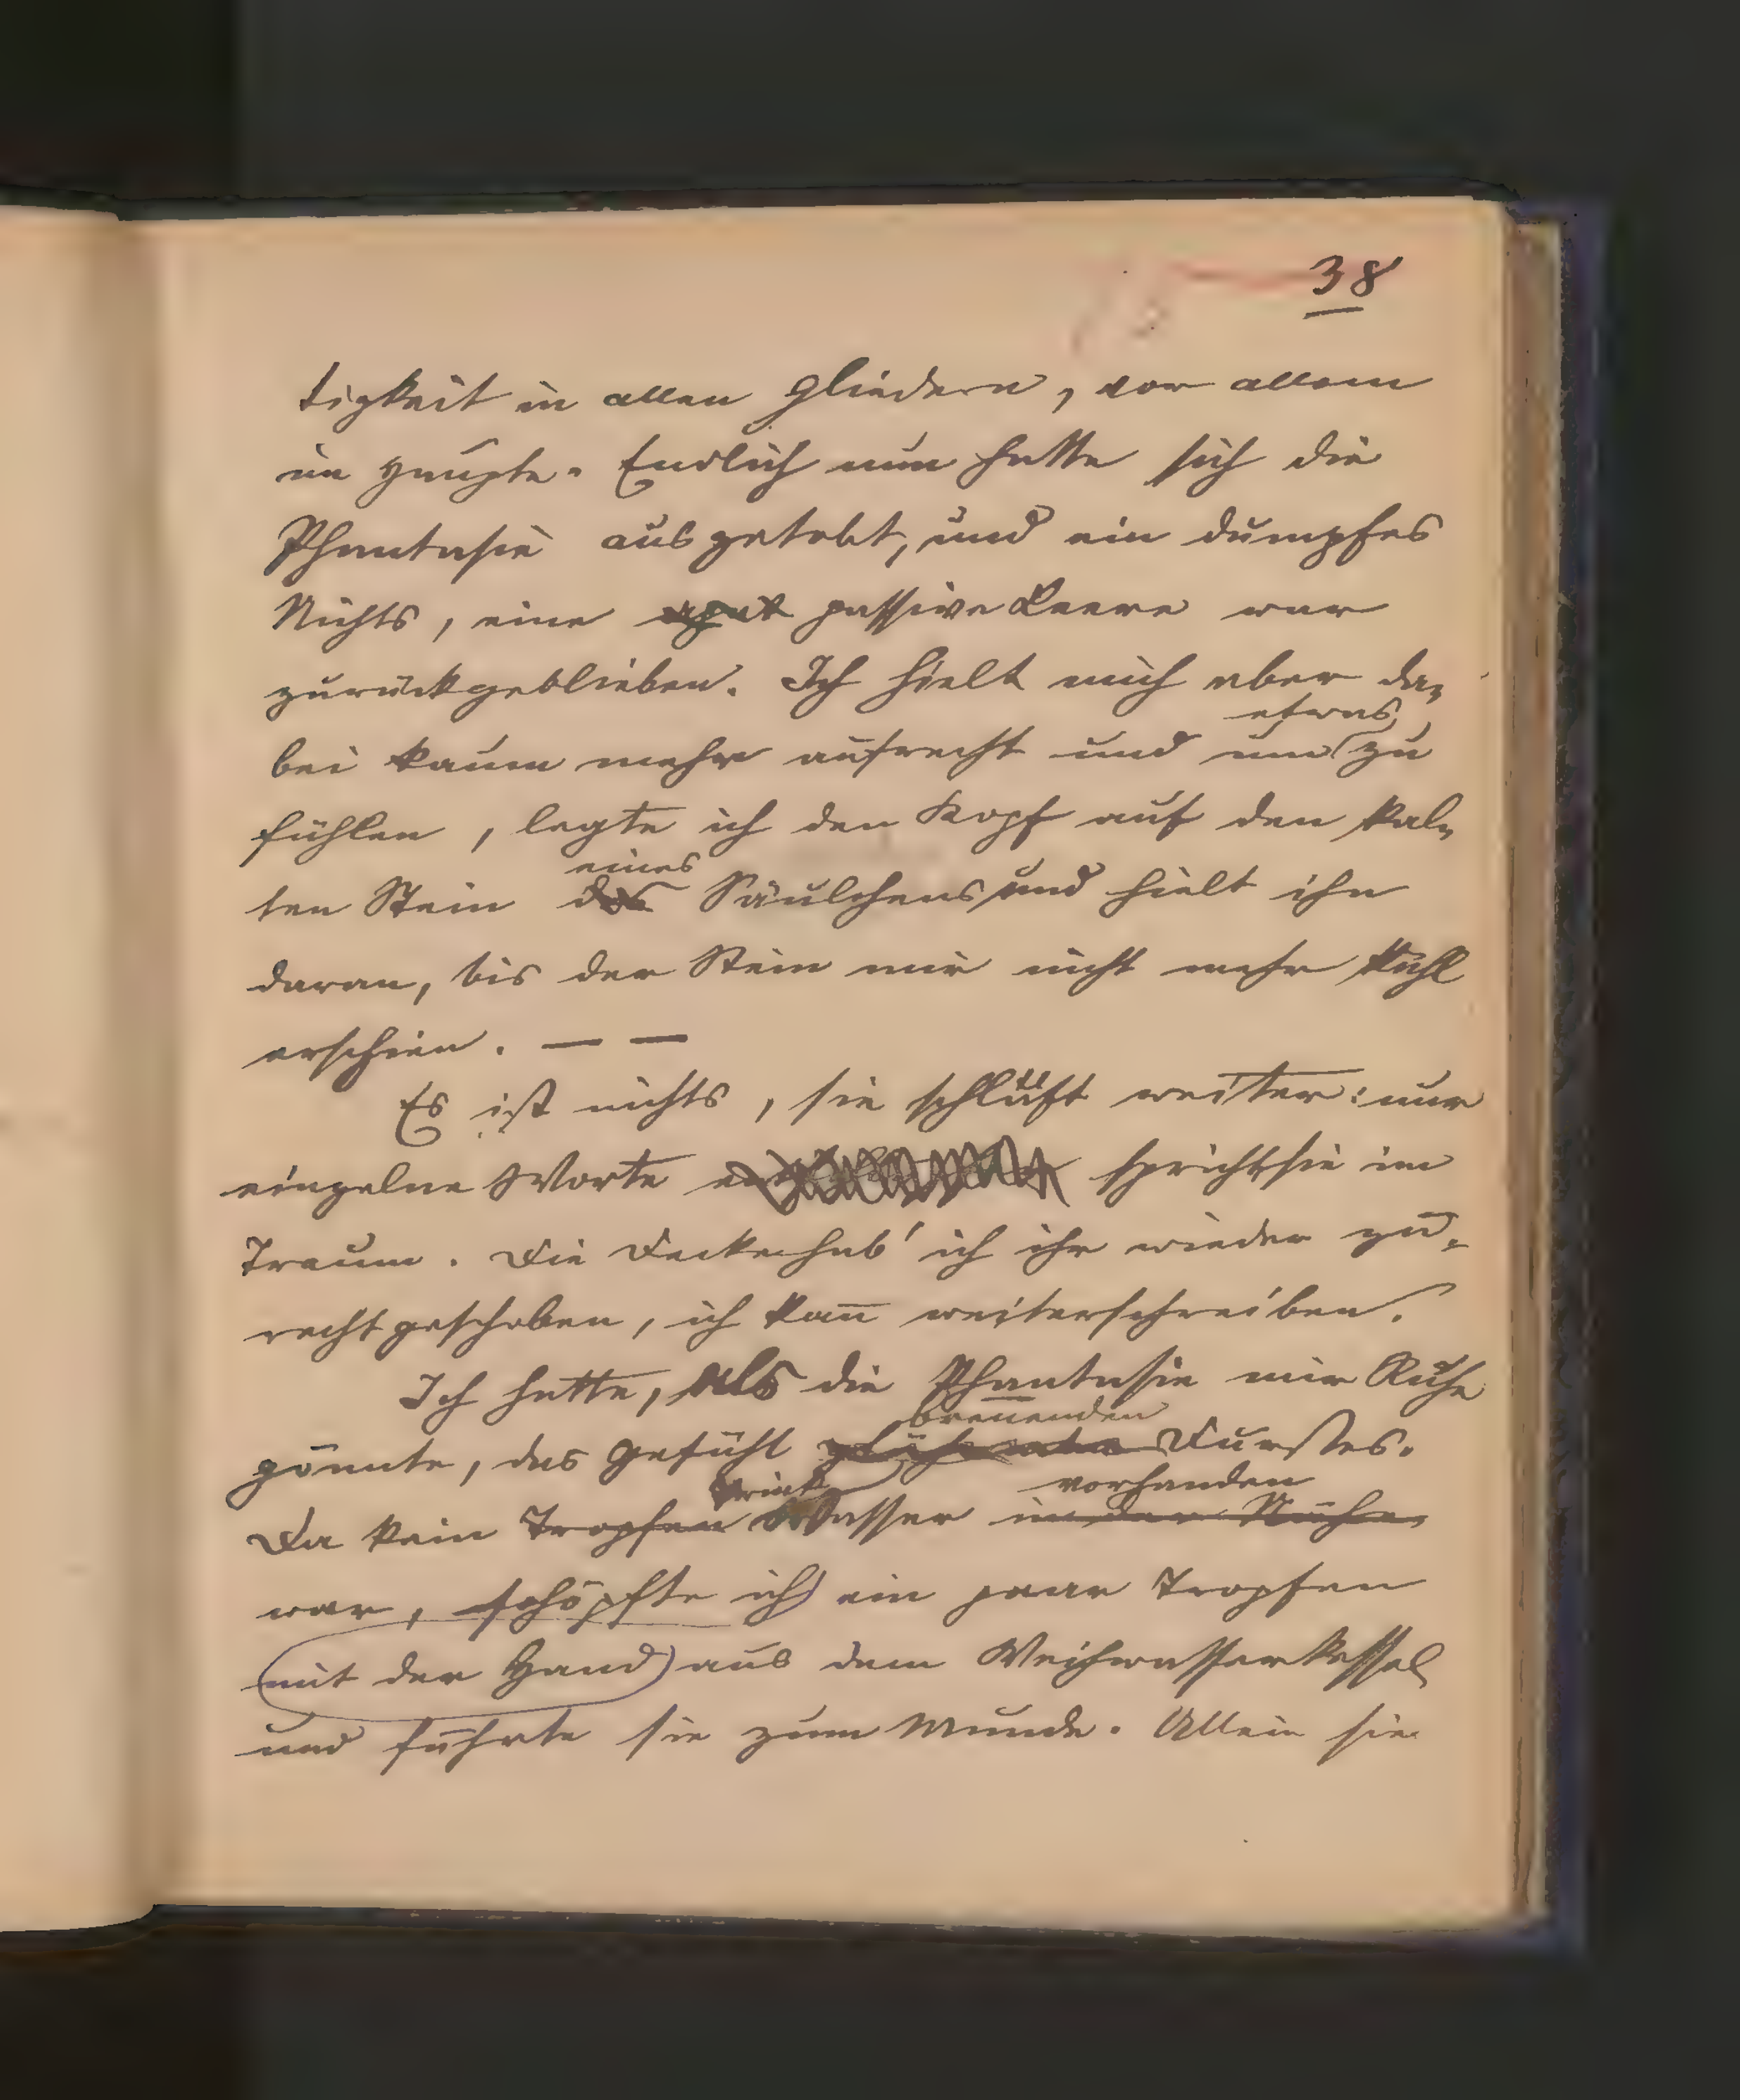 38
tigkeit in allen Gliedern, vor allem
im Haupte. Endlich nun hatte sich die
Phantasie ausgetobt, und ein dumpfes
Nichts, eine apat passive Leere war
zurückgeblieben. Ich hielt mich aber da-
etwas
bei kaum mehr aufrecht und um zu
fühlen, legte ich den Kopf auf den kal-
eines
ten Stein des Säulchens und hielt ihn
daran, bis der Stein mir nicht mehr kühl
erschien. — —
Es ist nichts, sie schläft weiter: nur
einzelne Worte spricht sie im
Traum. Die Decke hab' ich ihr wieder zu-
recht geschoben, ich kan̅ weiterschreiben.
Ich hatte, als die Phantasie mir Ruhe
bren̅enden
gönnte, das Gefühl glühenden Durstes.
Trink vorhanden
Da kein Tropfen Wasser in der Nähe
war, schöpfte ich ein paar Tropfen
mit der Hand aus dem Weihwasserkessel
und führte sie zum Munde. Allein sie